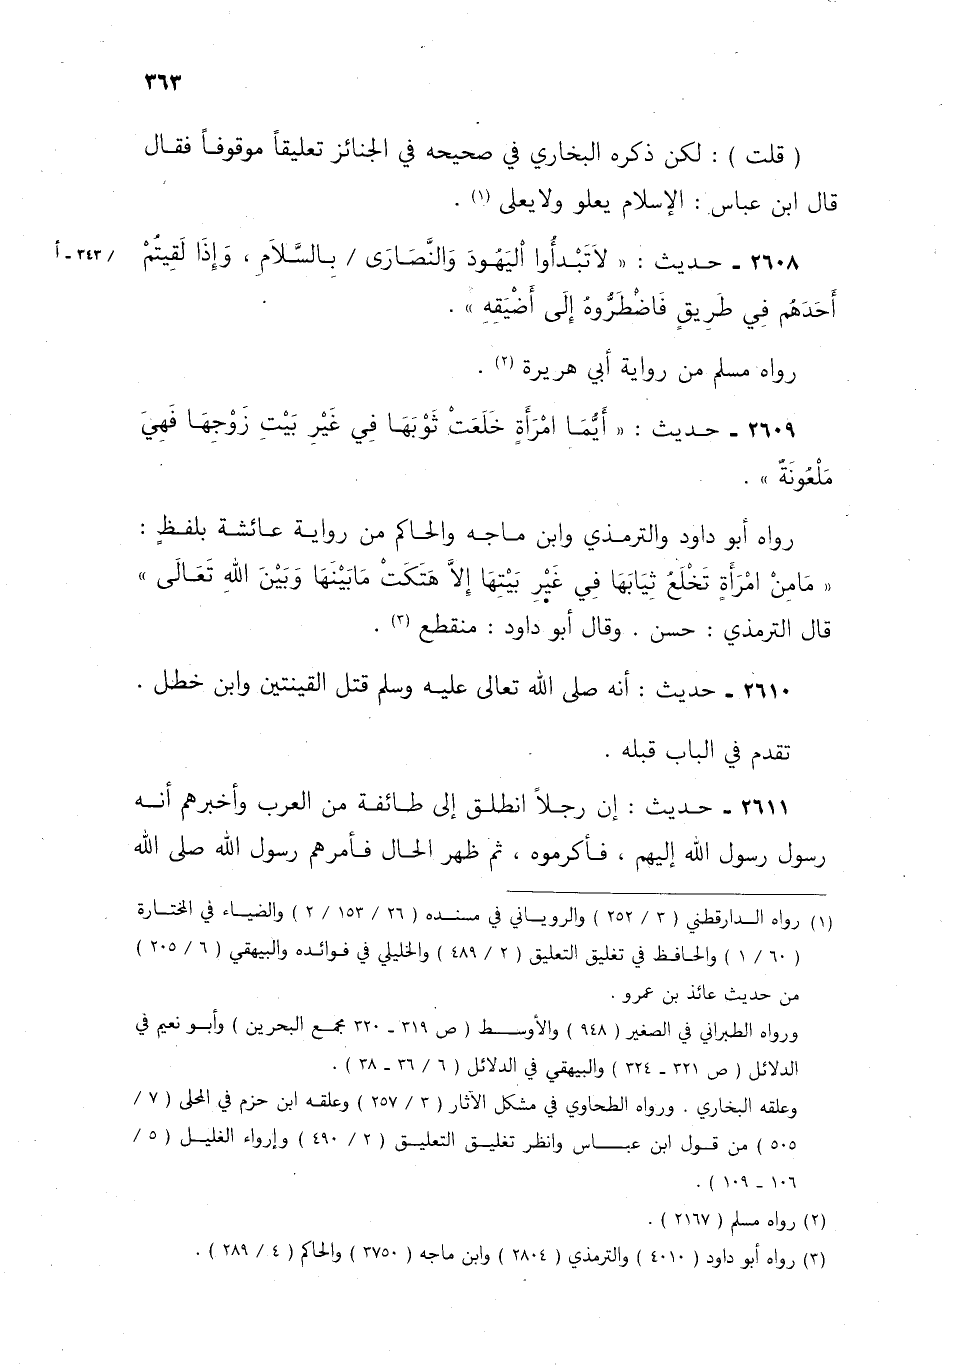 ٣٦٣
( قلت ) : لكن ذكره البخاري في صحيحه في الجنائز تعليقاً موقوفاً فقال
قال ابن عباس : الإسلام يعلو ولايعلى (١) .
٢٦٠٨ ـ حديث : « لاَتَبْدأُوا الْيَهُودَ وَالنَّصَارَى / بِالسَّلاَمِ ، وَإِذَا لَقِيتُمْ / ٣٤٣ ـ أ
أَحَدَهُم فِي طَرِيقٍ فَاضْطَرُّوهُ إِلَى أَضْيَقِهِ » .
رواه مسلم من رواية أبي هريرة (٢) .
٢٦٠٩ ـ حديث : « أَيُّمَا امْرَأَةٍ خَلَعَتْ ثَوْبَهَا فِي غَيْرِ بَيْتِ زَوْجِهَا فَهِيَ
مَلْعُونَةٌ » .
رواه أبو داود والترمذي وابن ماجه والحاكم من رواية عائشة بلفظٍ :
« مَامِنْ امْرَأَةٍ تَخْلَعُ ثِيَابَهَا فِي غَيْرِ بَيْتِهَا إِلاَّ هَتَكَتْ مَابَيْنَهَا وَبَيْنَ اللهِ تَعَالَى »
قال الترمذي : حسن . وقال أبو داود : منقطع (٣) .
٢٦١٠ ـ حديث : أنه صلى الله تعالى عليه وسلم قتل القينتين وابن خطل .
تقدم في الباب قبله .
٢٦١١ ـ حديث : إن رجلاً انطلق إلى طائفة من العرب وأخبرهم أنه
رسول رسول الله إليهم ، فأكرموه ، ثم ظهر الحال فأمرهم رسول الله صلى الله
(١) رواه الدارقطني ( ٣ / ٢٥٢ ) والروياني في مسنده ( ٢٦ / ١٥٣ / ٢ ) والضياء في المختارة
( ٦٠ / ١ ) والحافظ في تغليق التعليق ( ٢ / ٤٨٩ ) والخليلي في فوائده والبيهقي ( ٦ / ٢٠٥ )
من حديث عائذ بن عمرو .
ورواه الطبراني في الصغير ( ٩٤٨ ) والأوسط ( ص ٣١٩ ـ ٣٢٠ مجمع البحرين ) وأبو نعيم في
الدلائل ( ص ٣٢١ ـ ٣٢٤ ) والبيهقي في الدلائل ( ٦ / ٣٦ ـ ٣٨ ) .
وعلقه البخاري . ورواه الطحاوي في مشكل الآثار ( ٣ / ٢٥٧ ) وعلقه ابن حزم في المحلى ( ٧ /
٥٠٥ ) من قول ابن عباس وانظر تغليق التعليق ( ٢ / ٤٩٠ ) وإرواء الغليل ( ٥ /
١٠٦ ـ ١٠٩ ) .
(٢) رواه مسلم ( ٢١٦٧ ) .
(٣) رواه أبو داود ( ٤٠١٠ ) والترمذي ( ٢٨٠٤ ) وابن ماجه ( ٣٧٥٠ ) والحاكم ( ٤ / ٢٨٩ ) .